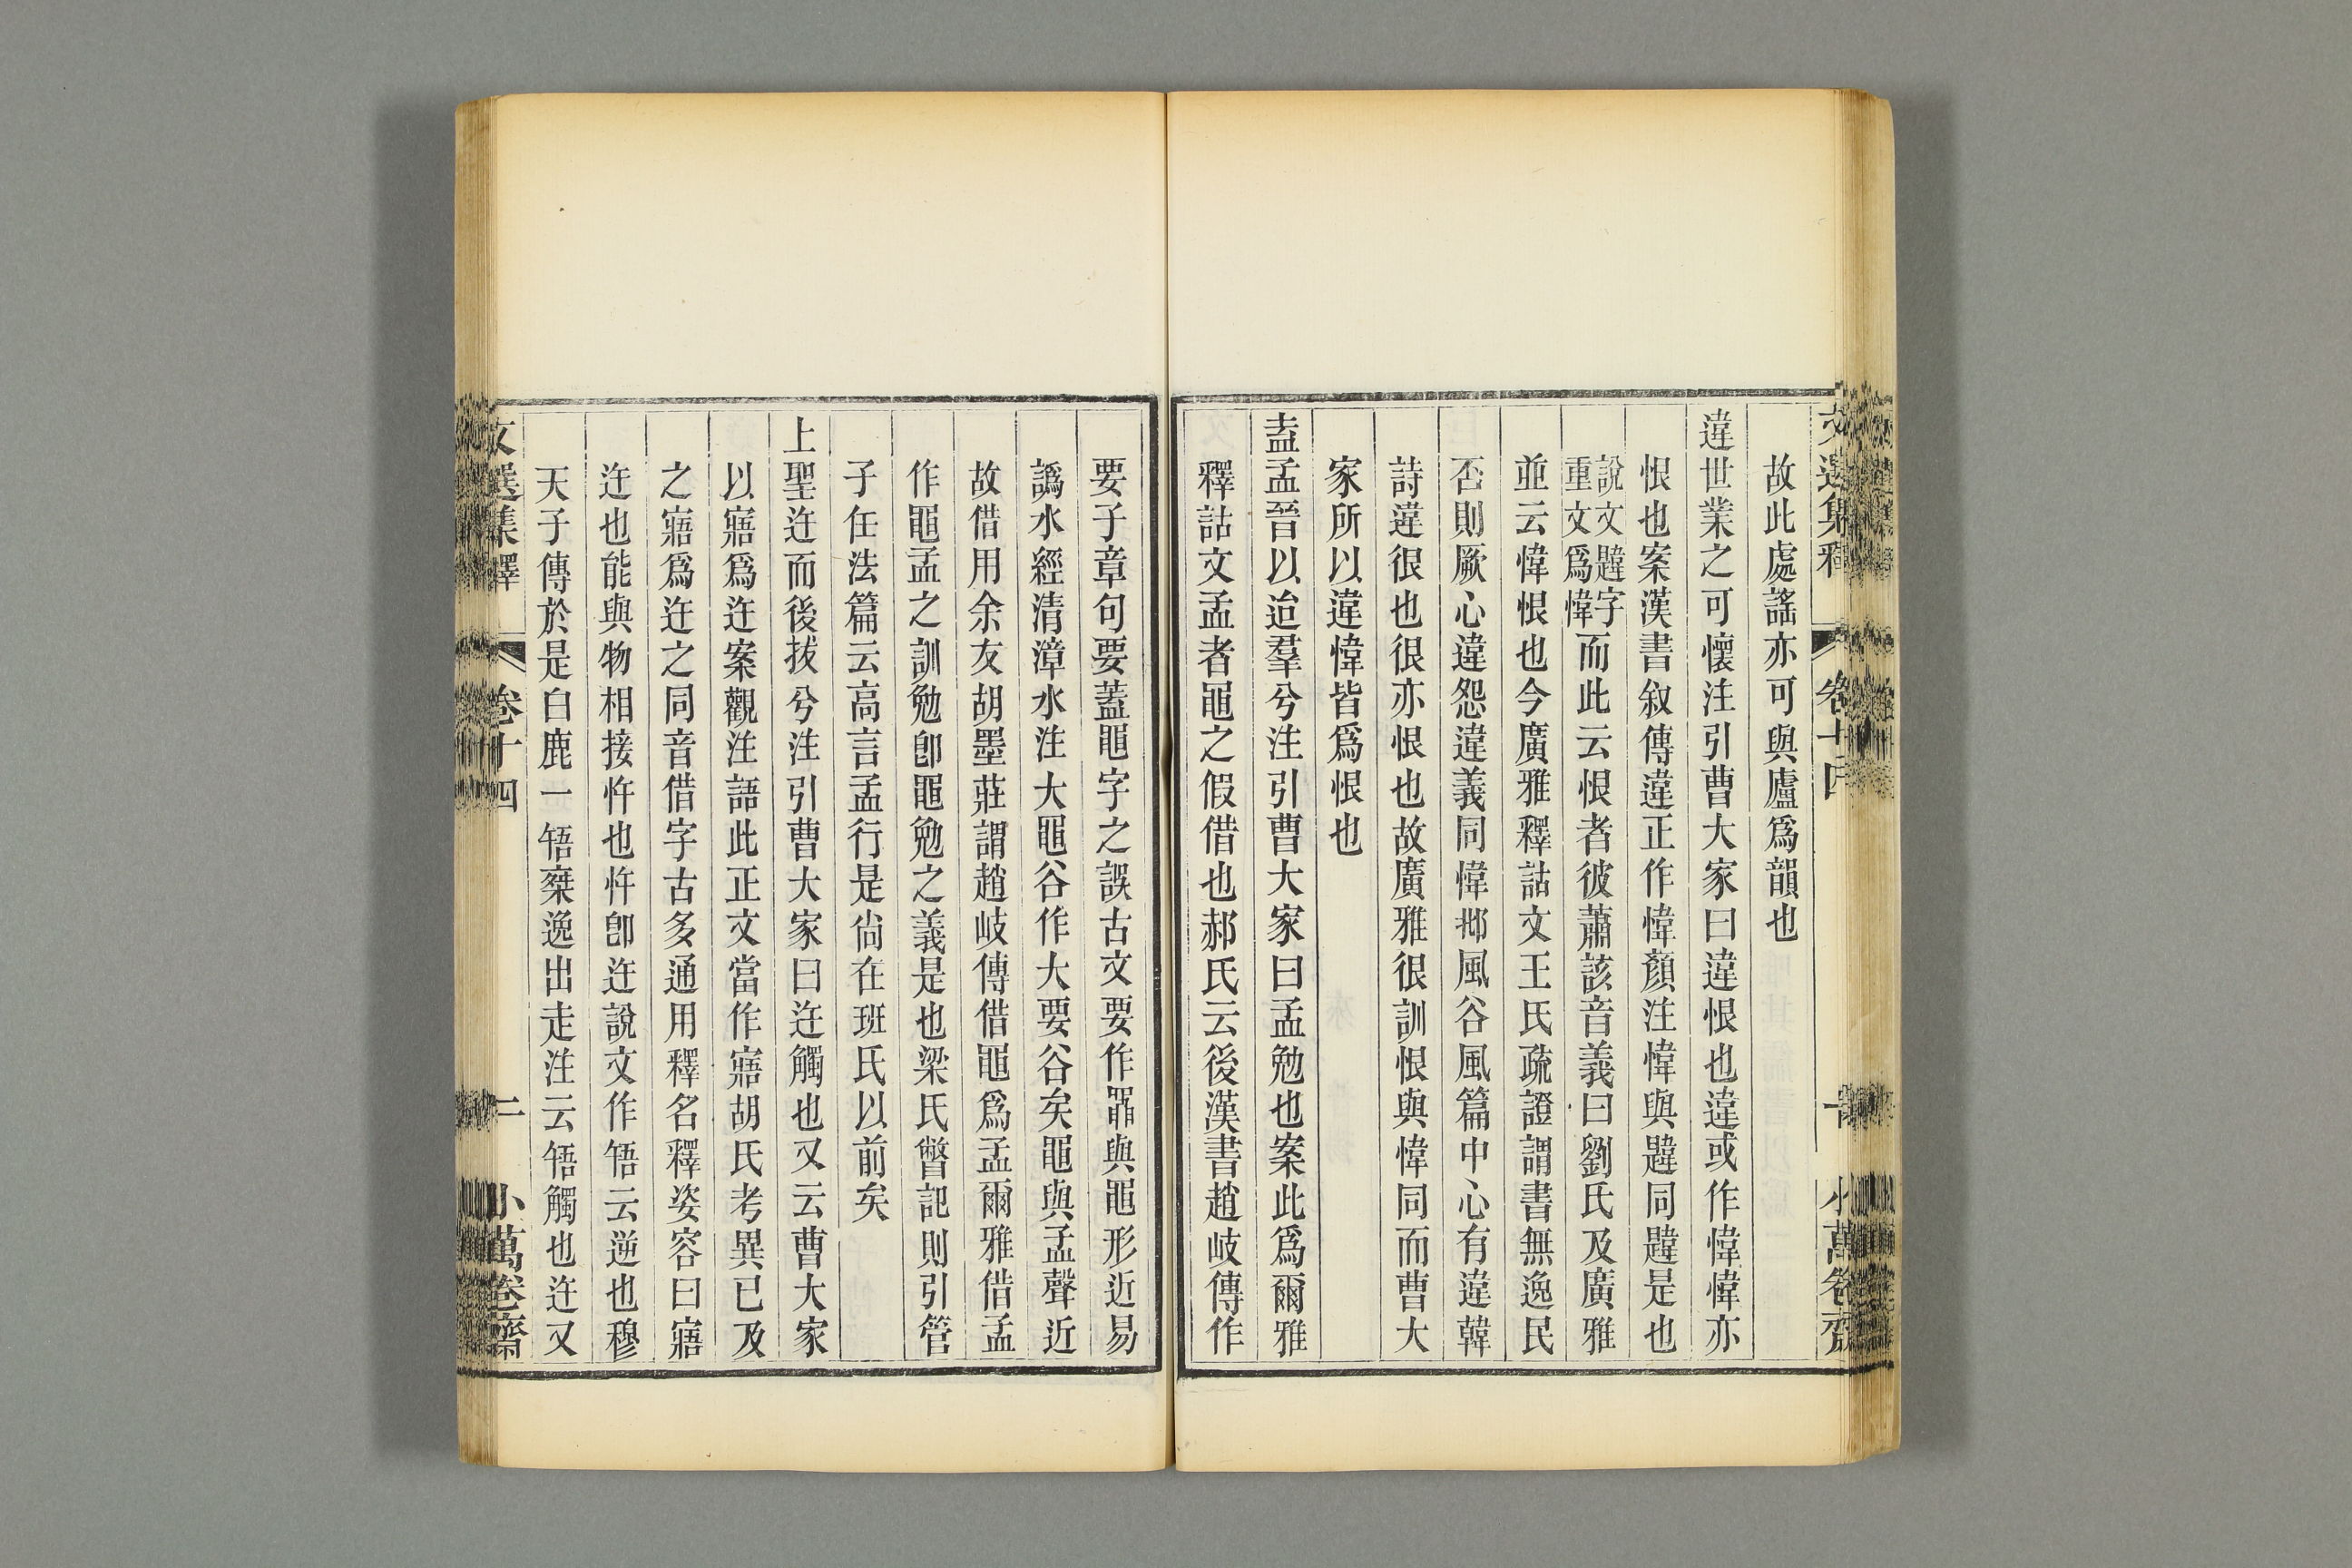 文選集釋 卷十四 小萬卷齋
故此處謠亦可與廬爲韻也
違世業之可懷注引曹大家曰違恨也違或作愇愇亦
恨也案漢書叙傳違正作愇顏注愇與韙同韙是也
說文韙字重文爲愇而此云恨者彼蕭該音義曰劉氏及廣雅
並云愇恨也今廣雅釋詁文王氏疏證謂書無逸民
否則厥心違怨違義同愇邶風谷風篇中心有違韓
詩違很也很亦恨也故廣雅很訓恨與愇同而曹大
家所以違愇皆爲恨也
盍孟晉以迨羣兮注引曹大家曰孟勉也案此爲爾雅
釋詁文孟者黽之假借也郝氏云後漢書趙岐傳作
要子章句要蓋黽字之誤古文要作𦥼與黽形近易
譌水經清漳水注大黽谷作大要谷矣黽與孟聲近
故借用余友胡墨莊謂趙岐傳借黽爲孟爾雅借孟
作黽孟之訓勉卽黽勉之義是也梁氏瞥記則引管
子任法篇云高言孟行是尙在班氏以前矣
上聖迕而後拔兮注引曹大家曰迕觸也又云曹大家
以寤爲迕案觀注語此正文當作寤胡氏考異已及
之寤爲迕之同音借字古多通用釋名釋姿容曰寤
迕也能與物相接忤也忤卽迕說文作啎云逆也穆
天子傳於是白鹿一啎椉逸出走注云啎觸也迕又
文選集釋 卷十四 二 小萬卷齋